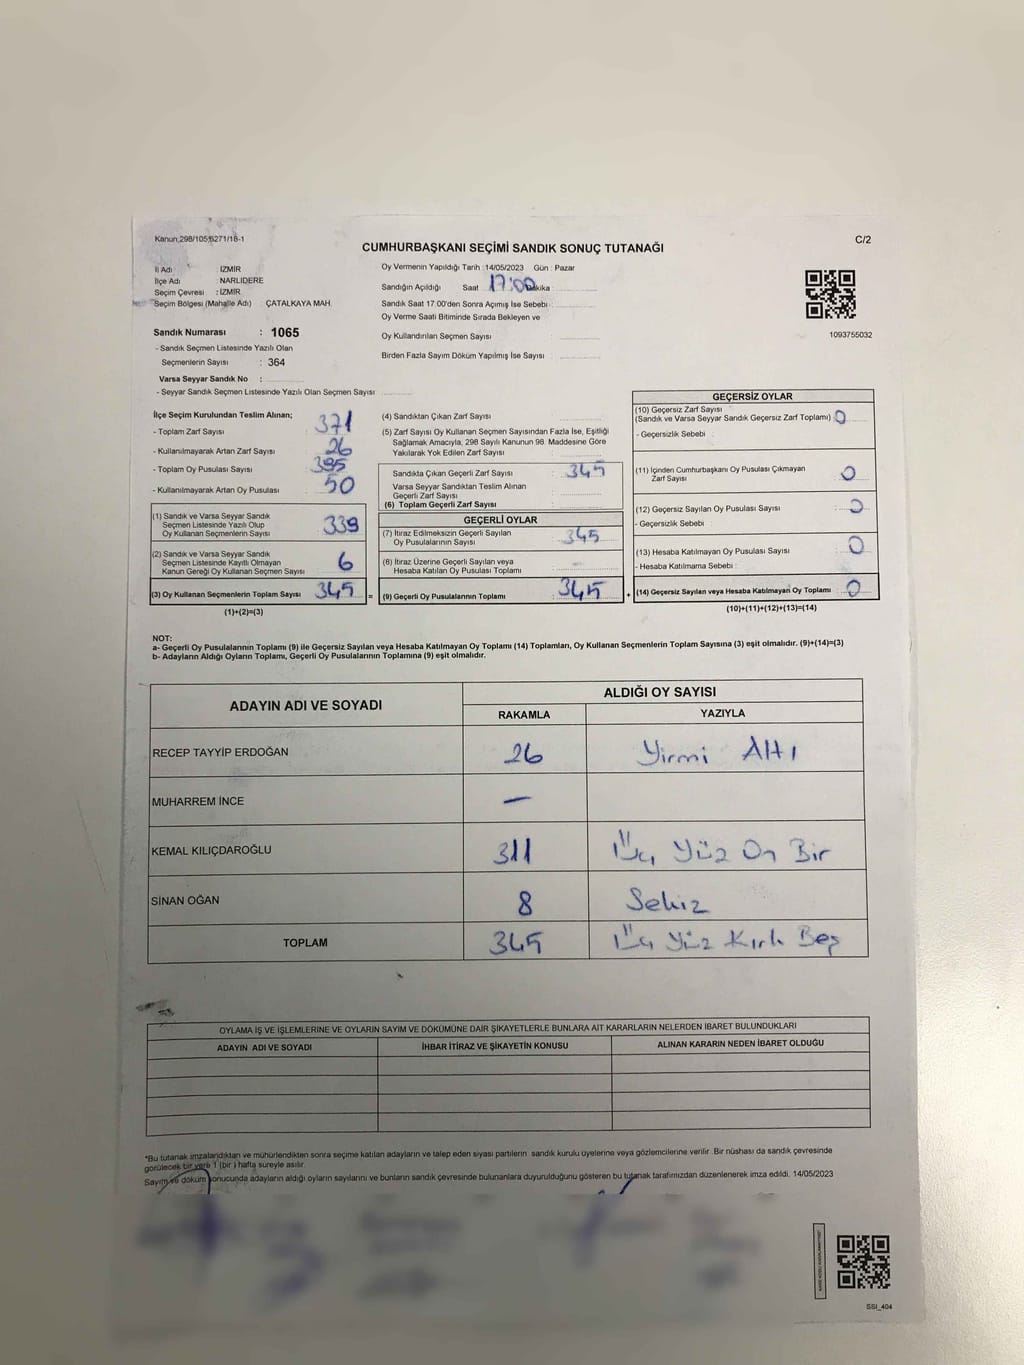 Kanun:298/105,6271/18-1
C/2
CUMHURBAŞKANI SEÇİMİ SANDIK SONUÇ TUTANAĞI
İl Adı : İZMİR
İlçe Adı : NARLIDERE
Seçim Çevresi : İZMİR
Seçim Bölgesi (Mahalle Adı) : ÇATALKAYA MAH.
Oy Vermenin Yapıldığı Tarih : 14/05/2023 Gün : Pazar
Sandığın Açıldığı Saat 17:00 Dakika :
Sandık Saat 17.00'den Sonra Açımış İse Sebebi :
Oy Verme Saati Bitiminde Sırada Bekleyen ve
Oy Kullandırılan Seçmen Sayısı :
Birden Fazla Sayım Döküm Yapılmış İse Sayısı :
1093755032
Sandık Numarası : 1065
- Sandık Seçmen Listesinde Yazılı Olan
Seçmenlerin Sayısı : 364
Varsa Seyyar Sandık No :
- Seyyar Sandık Seçmen Listesinde Yazılı Olan Seçmen Sayısı :
İlçe Seçim Kurulundan Teslim Alınan;
- Toplam Zarf Sayısı : 371
- Kullanılmayarak Artan Zarf Sayısı : 26
- Toplam Oy Pusulası Sayısı : 395
- Kullanılmayarak Artan Oy Pusulası : 50
(1) Sandık ve Varsa Seyyar Sandık
Seçmen Listesinde Yazılı Olup
Oy Kullanan Seçmenlerin Sayısı : 339
(2) Sandık ve Varsa Seyyar Sandık
Seçmen Listesinde Kayıtlı Olmayan
Kanun Gereği Oy Kullanan Seçmen Sayısı : 6
(3) Oy Kullanan Seçmenlerin Toplam Sayısı : 345 =
(1)+(2)=(3)
(4) Sandıktan Çıkan Zarf Sayısı :
(5) Zarf Sayısı Oy Kullanan Seçmen Sayısından Fazla İse, Eşitliği
Sağlamak Amacıyla, 298 Sayılı Kanunun 98. Maddesine Göre
Yakılarak Yok Edilen Zarf Sayısı :
Sandıkta Çıkan Geçerli Zarf Sayısı : 345
Varsa Seyyar Sandıktan Teslim Alınan
Geçerli Zarf Sayısı :
(6) Toplam Geçerli Zarf Sayısı :
GEÇERLİ OYLAR
(7) İtiraz Edilmeksizin Geçerli Sayılan
Oy Pusulalarının Sayısı : 345
(8) İtiraz Üzerine Geçerli Sayılan veya
Hesaba Katılan Oy Pusulası Toplamı : -
(9) Geçerli Oy Pusulalarının Toplamı : 345 +
GEÇERSİZ OYLAR
(10) Geçersiz Zarf Sayısı
(Sandık ve Varsa Seyyar Sandık Geçersiz Zarf Toplamı) : 0
- Geçersizlik Sebebi :
(11) İçinden Cumhurbaşkanı Oy Pusulası Çıkmayan
Zarf Sayısı : 0
(12) Geçersiz Sayılan Oy Pusulası Sayısı : 0
- Geçersizlik Sebebi :
(13) Hesaba Katılmayan Oy Pusulası Sayısı : 0
- Hesaba Katılmama Sebebi :
(14) Geçersiz Sayılan veya Hesaba Katılmayan Oy Toplamı : 0
(10)+(11)+(12)+(13)=(14)
NOT:
a- Geçerli Oy Pusulalarının Toplamı (9) ile Geçersiz Sayılan veya Hesaba Katılmayan Oy Toplamı (14) Toplamları, Oy Kullanan Seçmenlerin Toplam Sayısına (3) eşit olmalıdır. (9)+(14)=(3)
b- Adayların Aldığı Oyların Toplamı, Geçerli Oy Pusulalarının Toplamına (9) eşit olmalıdır.
ADAYIN ADI VE SOYADI
ALDIĞI OY SAYISI
RAKAMLA YAZIYLA
RECEP TAYYİP ERDOĞAN 26 Yirmi Altı
MUHARREM İNCE —
KEMAL KILIÇDAROĞLU 311 Üç Yüz On Bir
SİNAN OĞAN 8 Sekiz
TOPLAM 345 Üç Yüz Kırk Beş
OYLAMA İŞ VE İŞLEMLERİNE VE OYLARIN SAYIM VE DÖKÜMÜNE DAİR ŞİKAYETLERLE BUNLARA AİT KARARLARIN NELERDEN İBARET BULUNDUKLARI
ADAYIN ADI VE SOYADI İHBAR İTİRAZ VE ŞİKAYETİN KONUSU ALINAN KARARIN NEDEN İBARET OLDUĞU
*Bu tutanak imzalandıktan ve mühürlendikten sonra seçime katılan adayların ve talep eden siyasi partilerin sandık kurulu üyelerine veya gözlemcilerine verilir. Bir nüshası da sandık çevresinde
görülecek bir yere 1 (bir) hafta süreyle asılır.
Sayım ve döküm sonucunda adayların aldığı oyların sayılarını ve bunların sandık çevresinde bulunanlara duyurulduğunu gösteren bu tutanak tarafımızdan düzenlenerek imza edildi. 14/05/2023
SSI_404